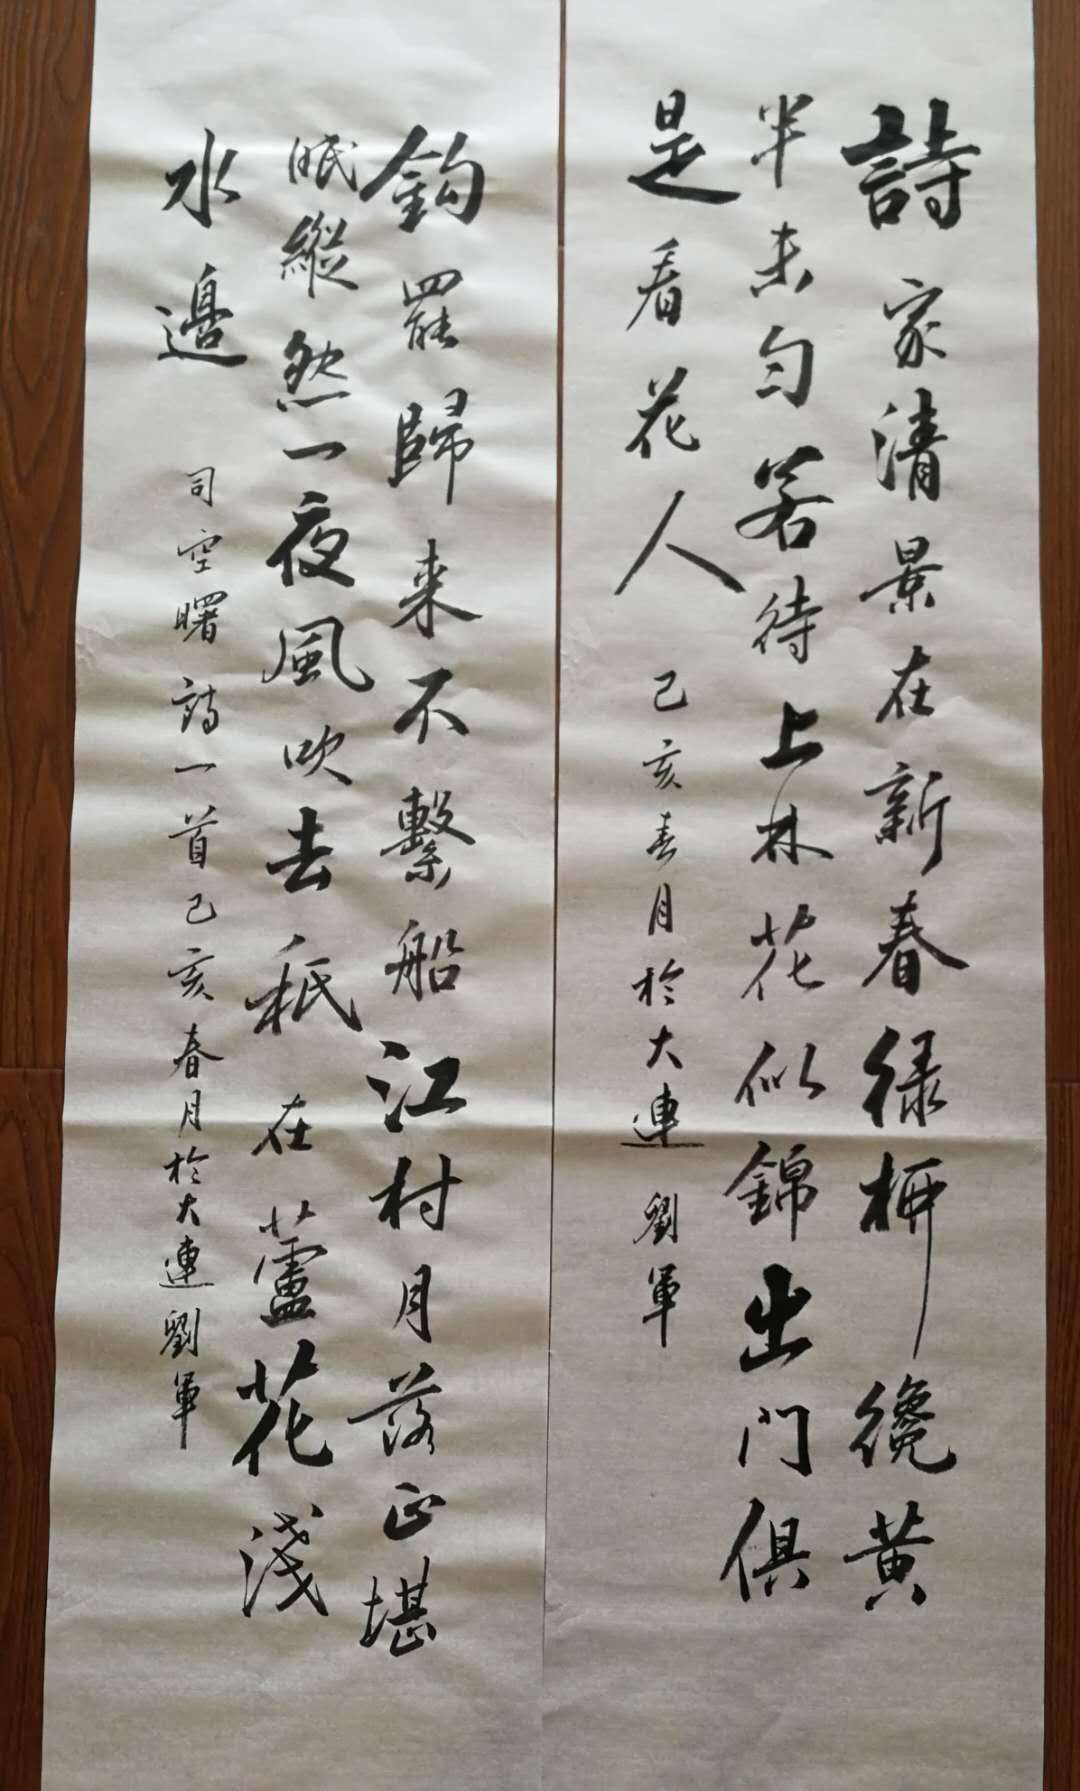 詩家清景在新春緑柳纔黄
半未匀若待上林花似錦出門俱
是看花人
己亥春月於大連 劉軍
釣罷歸来不繫船江村月落正堪
眠縱然一夜風吹去秖在蘆花淺
水邊
司空曙詩一首己亥春月於大連劉軍